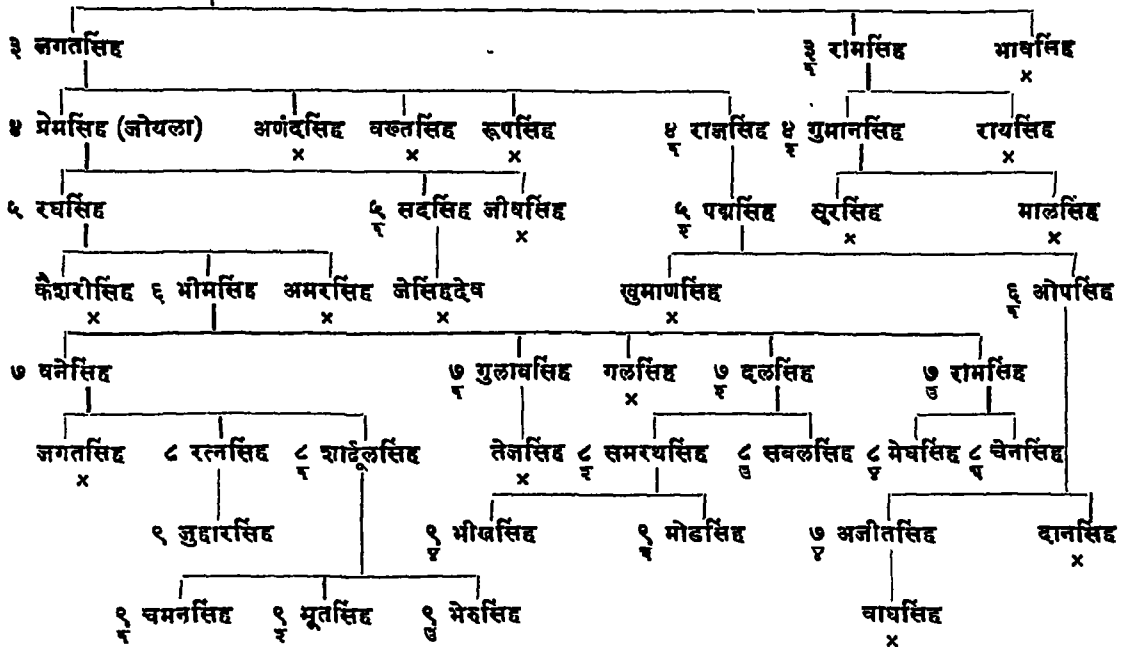 ३ जगतसिंह ३/१ रामसिंह भाषसिंह
× 
४ प्रेमसिंह (जोयला) अणंदसिंह वख्तसिंह रूपसिंह ४/१ राजसिंह ४/२ गुमानसिंह रायसिंह
× × × ×
५ रघसिंह ५/१ सदसिंह जीषसिंह ५/२ पद्मसिंह सूरसिंह मालसिंह
× × ×
कैशरीसिंह ६ भीमसिंह अमरसिंह जेसिंहदेष खुमाणसिंह ६/१ ओपसिंह
× × × ×
७ षनेसिंह ७/१ गुलाषसिंह गलसिंह ७/२ दलसिंह ७/३ रामसिंह
×
जगतसिंह ८ रत्नसिंह ८/१ शार्दूलसिंह तेजसिंह ८/२ समरथसिंह ८/३ सबलसिंह ८/४ मेघसिंह ८/५ चेनसिंह
× ×
९ जुद्दारसिंह ९/४ भीखसिंह ९/५ मोडसिंह ७/४ अजीतसिंह दानसिंह
×
९/१ चमनसिंह ९/२ मूतसिंह ९/३ भेरुसिंह वाघसिंह
×